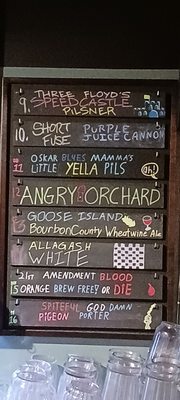 THREE FLOYD'S
9. SPEEDCASTLE
PILSNER
10. SHORT FUSE PURPLE JUICE CANNON
11 OSKAR BLUES MAMMA'S
LITTLE YELLA PILS
ANGRY ORCHARD
GOOSE ISLAND
Bourbon County Wheatwine Ale
ALLAGASH
WHITE
21ST AMENDMENT BLOOD
15 ORANGE BREW FREE? OR DIE
SPITEFUL GOD DAMN
16 PIGEON PORTER